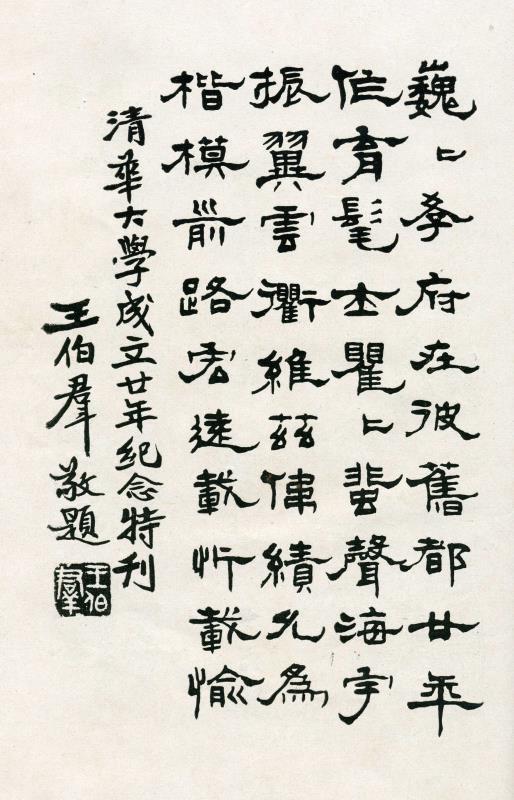 巍〻學府在彼舊都廿年
作育髦士瞿〻蜚聲海宇
振翼雲衢維茲偉績允為
楷模前路宏遠載忻載愉
清華大學成立廿年紀念特刊
王伯羣敬題
王伯羣